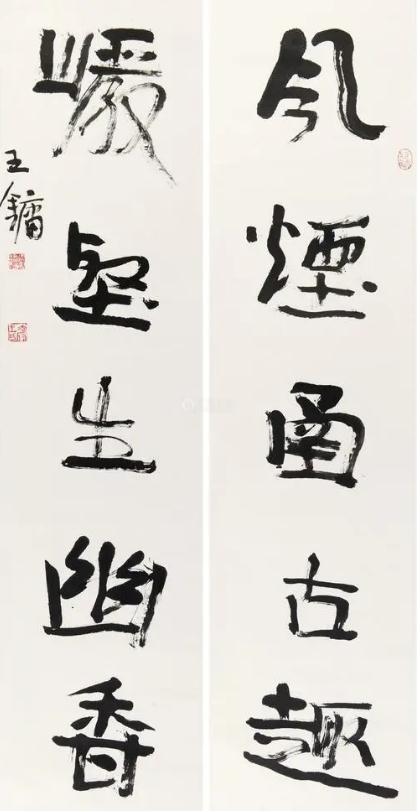 风煙圅古趣
巖壑生幽香
王鏞